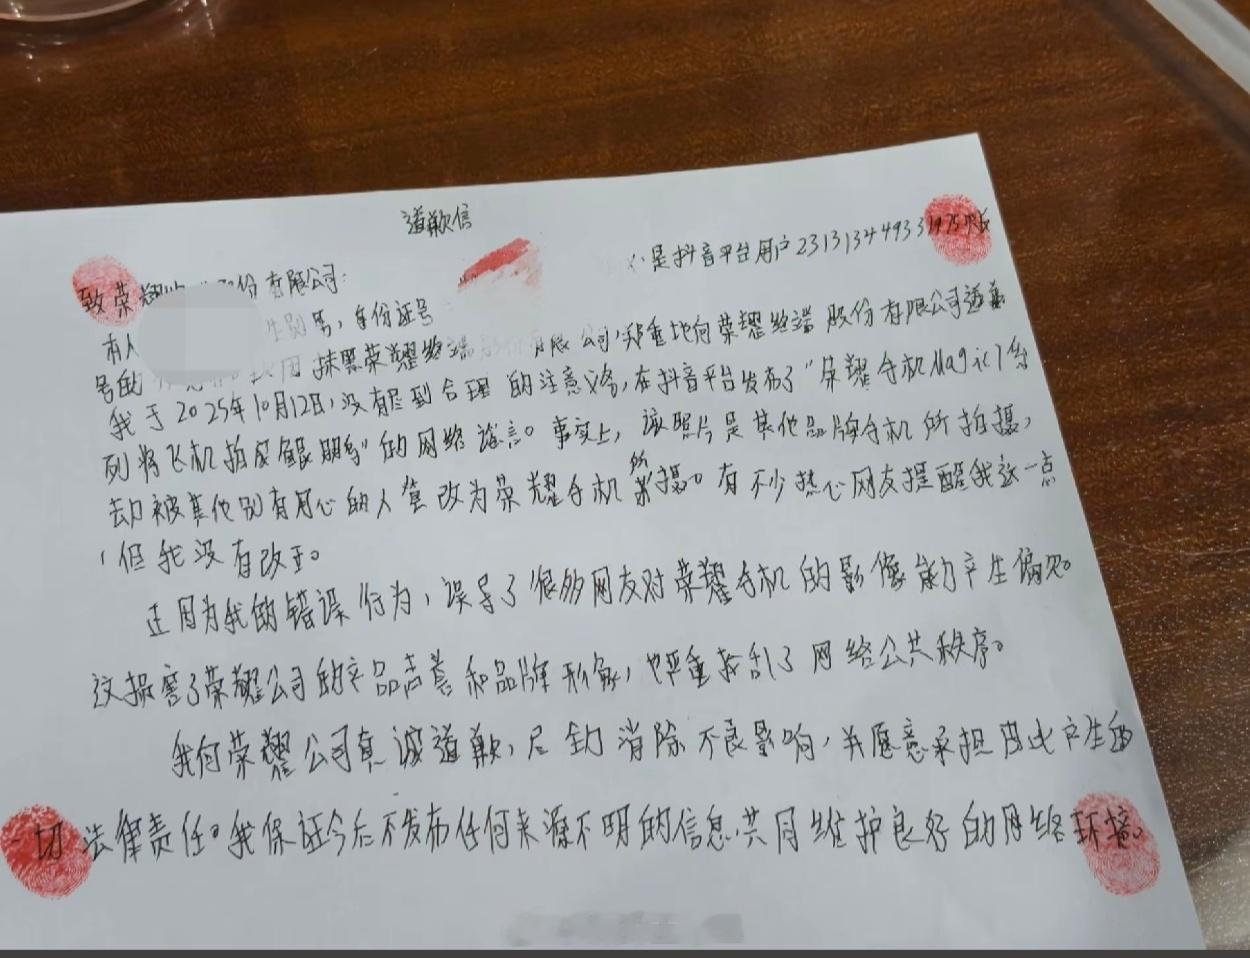 道歉信
致荣耀 股份有限公司:
本人 性别男,身份证号 是抖音平台用户23131344933
号的 抹黑荣耀终端 有限公司,郑重地向荣耀终端股份有限公司道歉
我于2025年10月12日,没有尽到合理的注意义务,在抖音平台发布了“荣耀手机Magic7系
列将飞机拍成 ”的网络谣言。事实上,该照片是其他品牌手机所拍摄,
却被其他别有用心的人篡改为荣耀手机所拍摄。有不少热心网友提醒我这一点
,但我没有改正。
正因为我的错误行为,误导了很多网友对荣耀手机的影像能力产生偏见。
这损害了荣耀公司的产品声誉和品牌形象,也严重扰乱了网络公共秩序。
我向荣耀公司真诚道歉,尽力消除不良影响,并愿意承担因此产生的
一切法律责任。我保证今后不发布任何来源不明的信息,共同维护良好的网络环境。